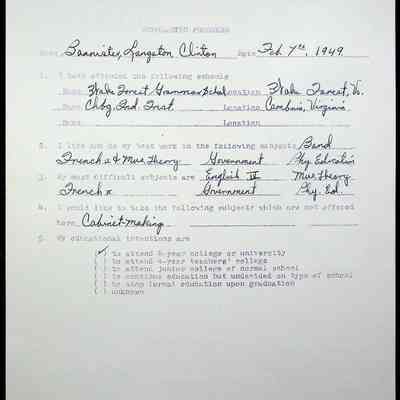 SCHOLASTIC PROGRESS
Name Bannister, Langston Clinton Date Feb. 7th, 1949
1. I have attended the following schools
Name Location Forest, Va.
Name Location Virginia
Name Location
2. I like and do my best work in the following subjects Band
French I & Mus. Theory Government Phy. Education
3. My most difficult subjects are English IV Mus. Theory
French I Government Phy. Ed.
4. I would like to take the following subjects which are not offered
here Cabinet-Making
5. My educational intentions are
( ) to attend 4-year college or university
( ) to attend 4-year teachers' college
( ) to attend junior college or normal school
( ) to continue education but undecided on type of school
( ) to stop formal education upon graduation
( ) unknown